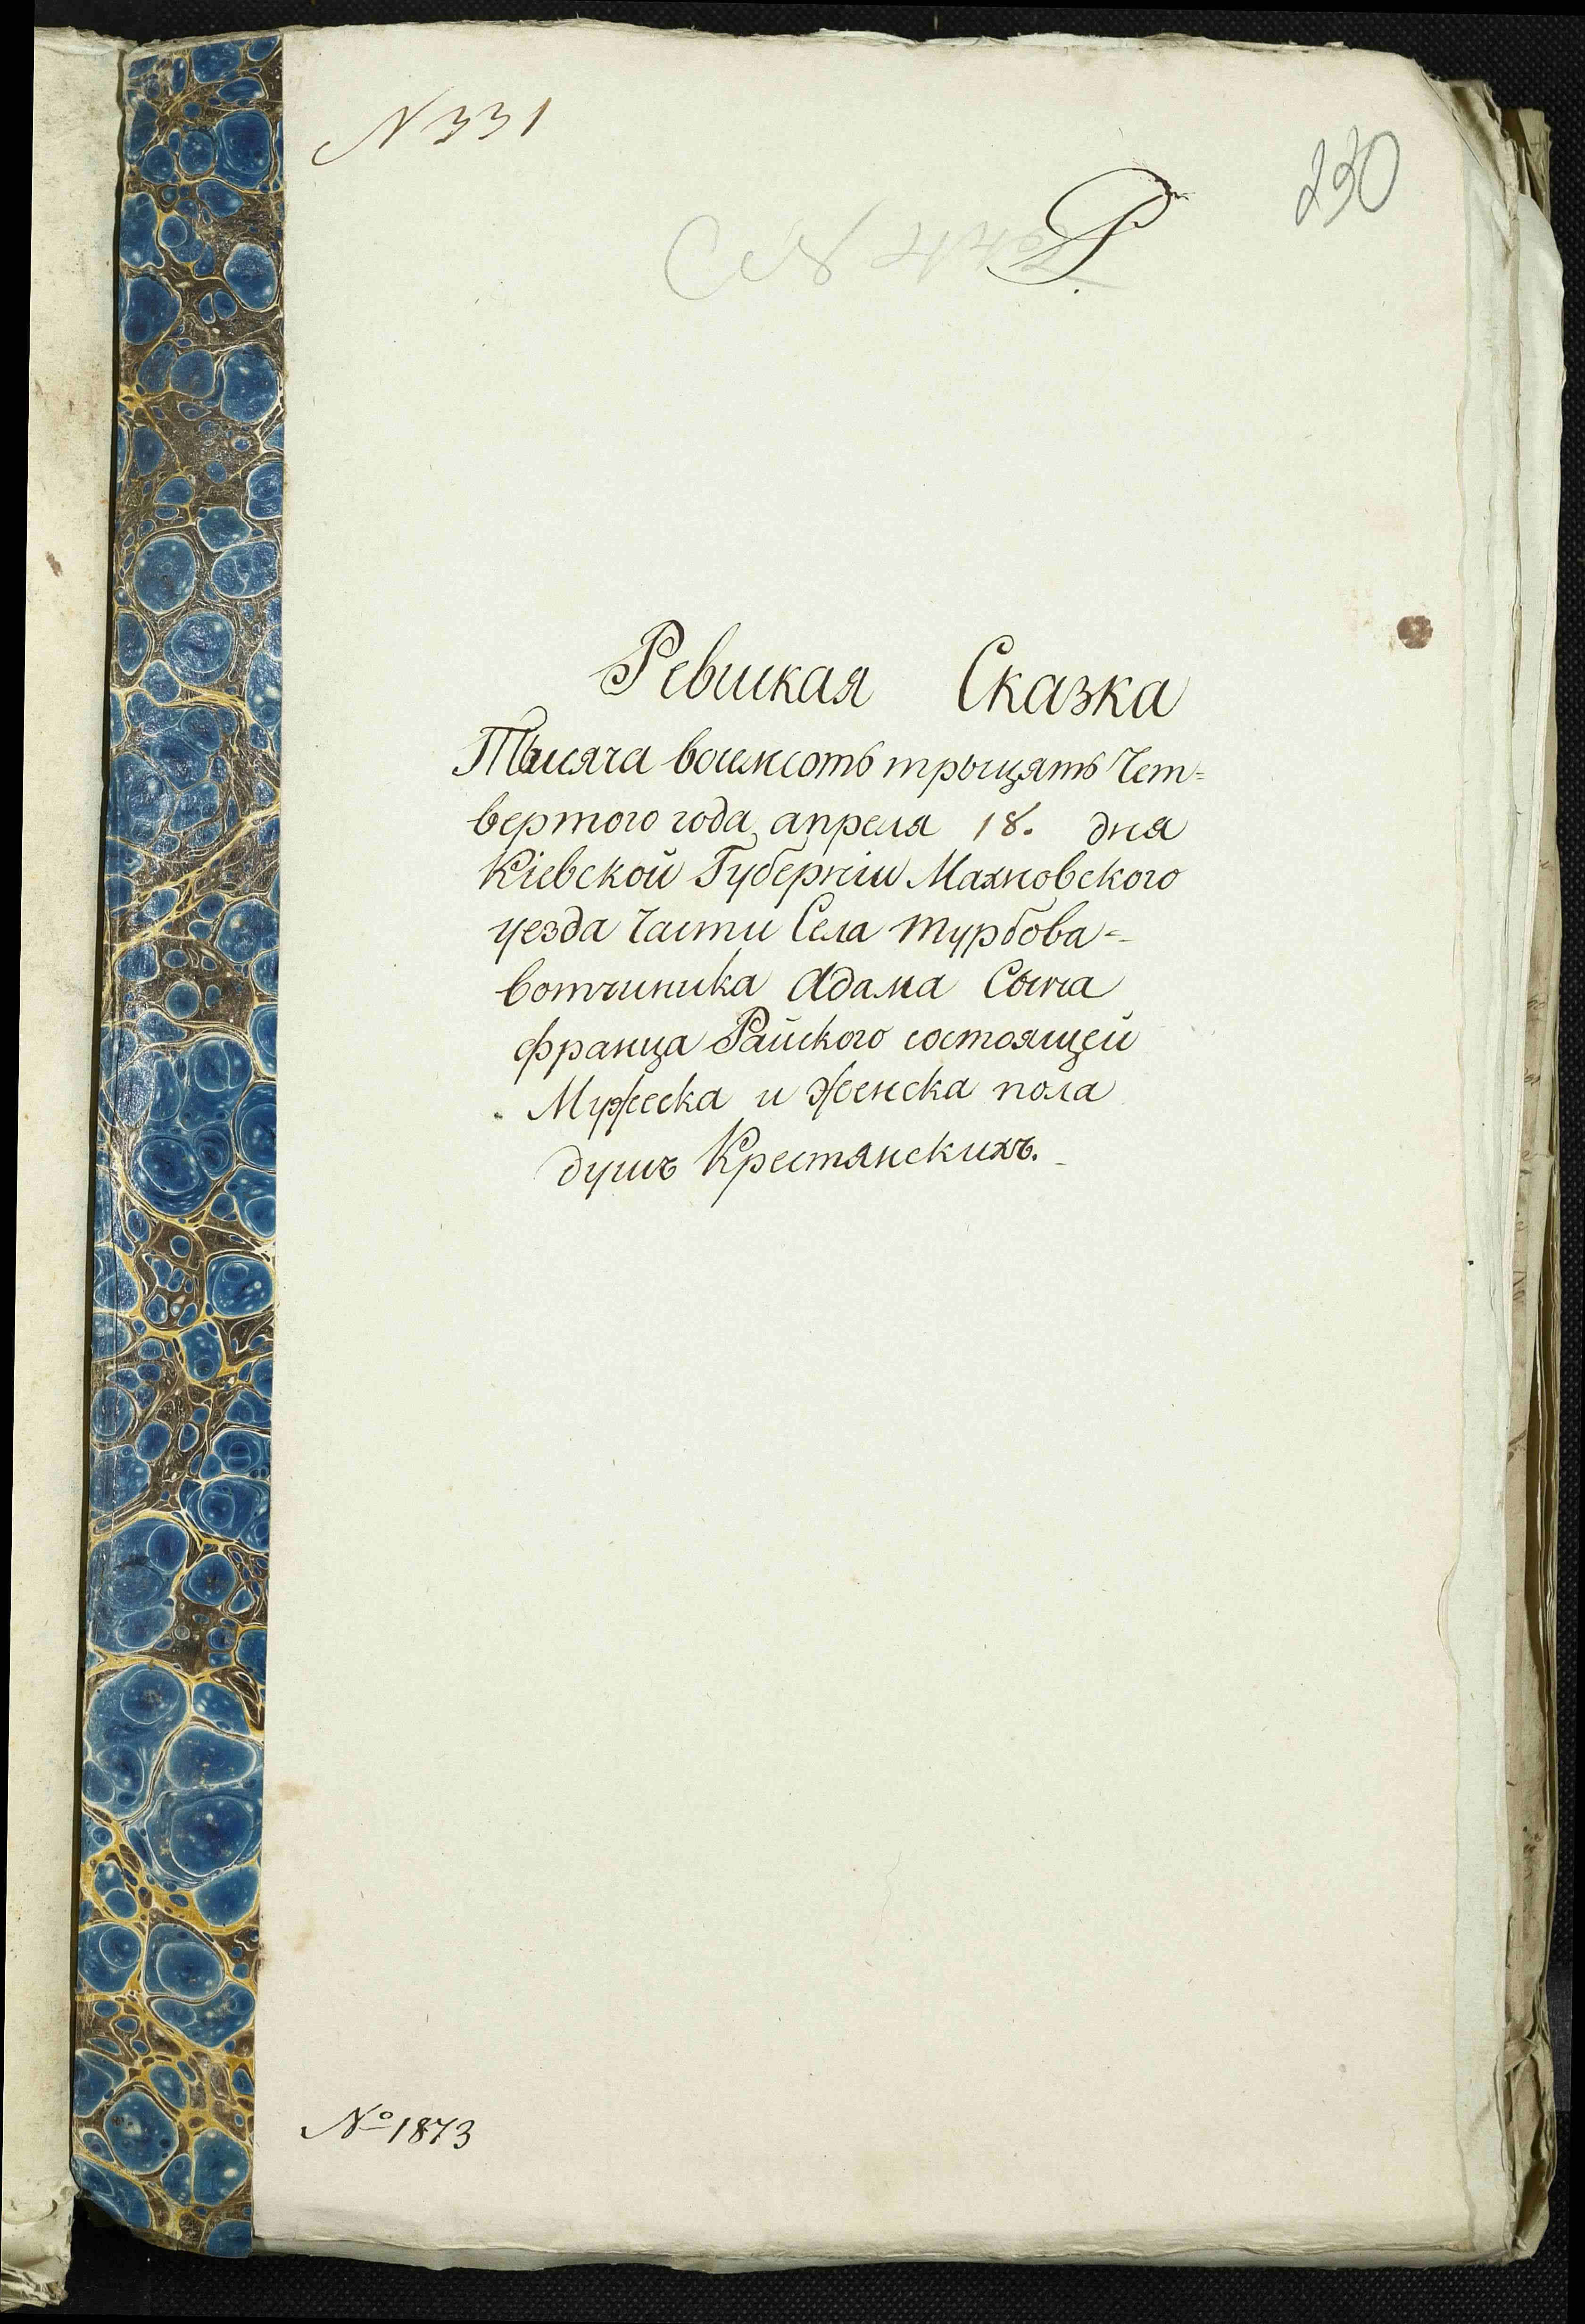 N 331
230
Р.
Ревиская Сказка
Тысяча восемсотъ трыцять Чет=
вертого года апреля 18. дня
Кіевской Губерніи Махновского
уезда Части Села Турбова=
вотчиника Адама Сына
франца Райского состоящей
Мужеска и Женска пола
душъ Крестянскихъ.
№ 1873